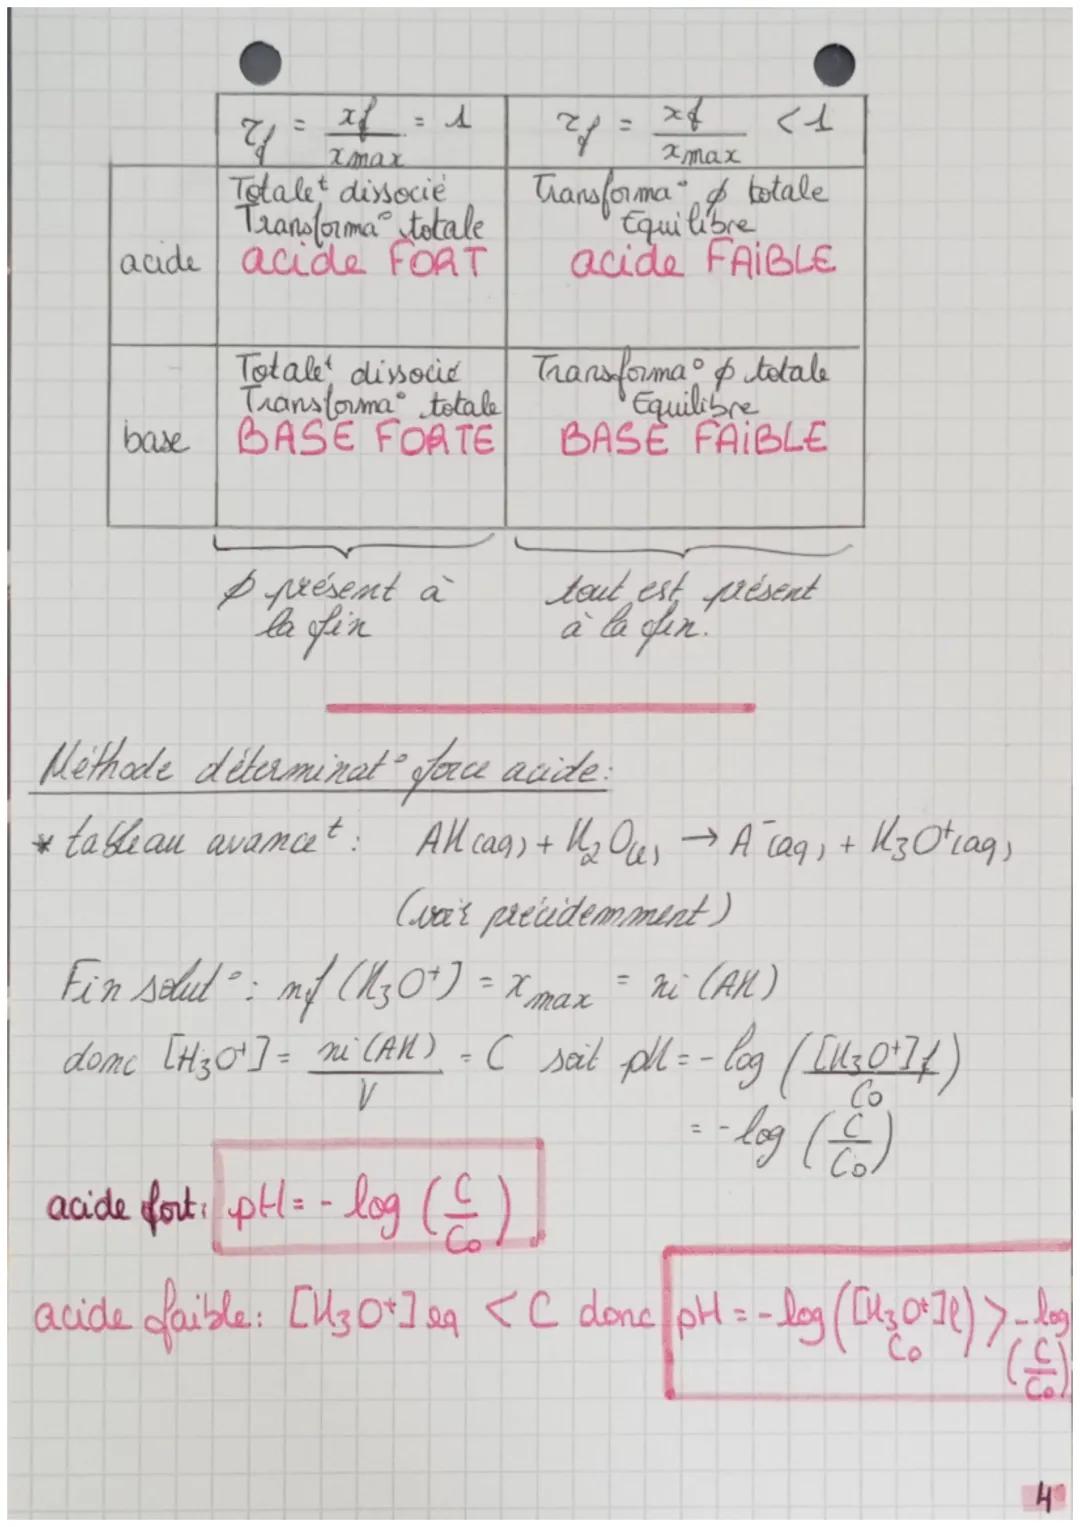 τf = xf / xmax = 1
τf = xf / xmax < 1
acide
Totaleᵗ dissocié
Transforma° totale
acide FORT
Transforma° ∅ totale
Equilibre
acide FAiBLE
base
Totaleᵗ dissocié
Transforma° totale
BASE FORTE
Transforma° ∅ totale
Equilibre
BASE FAiBLE
∅ présent à
la fin
tout est présent
à la fin.
Méthode déterminat° force acide:
* tableau avanceᵗ : AH(aq) + H₂O(l) → A⁻(aq) + H₃O⁺(aq)
(voir précidemment)
Fin solut° : nf (H₃O⁺) = xmax = ni (AH)
donc [H₃O⁺] = ni (AH) / V = C soit pH = - log ([H₃O⁺]f / C₀)
= - log (C / C₀)
acide fort: pH = - log (C / C₀)
acide faible: [H₃O⁺]eq < C donc pH = - log ([H₃O⁺]f / C₀) > - log
(C / C₀)
4